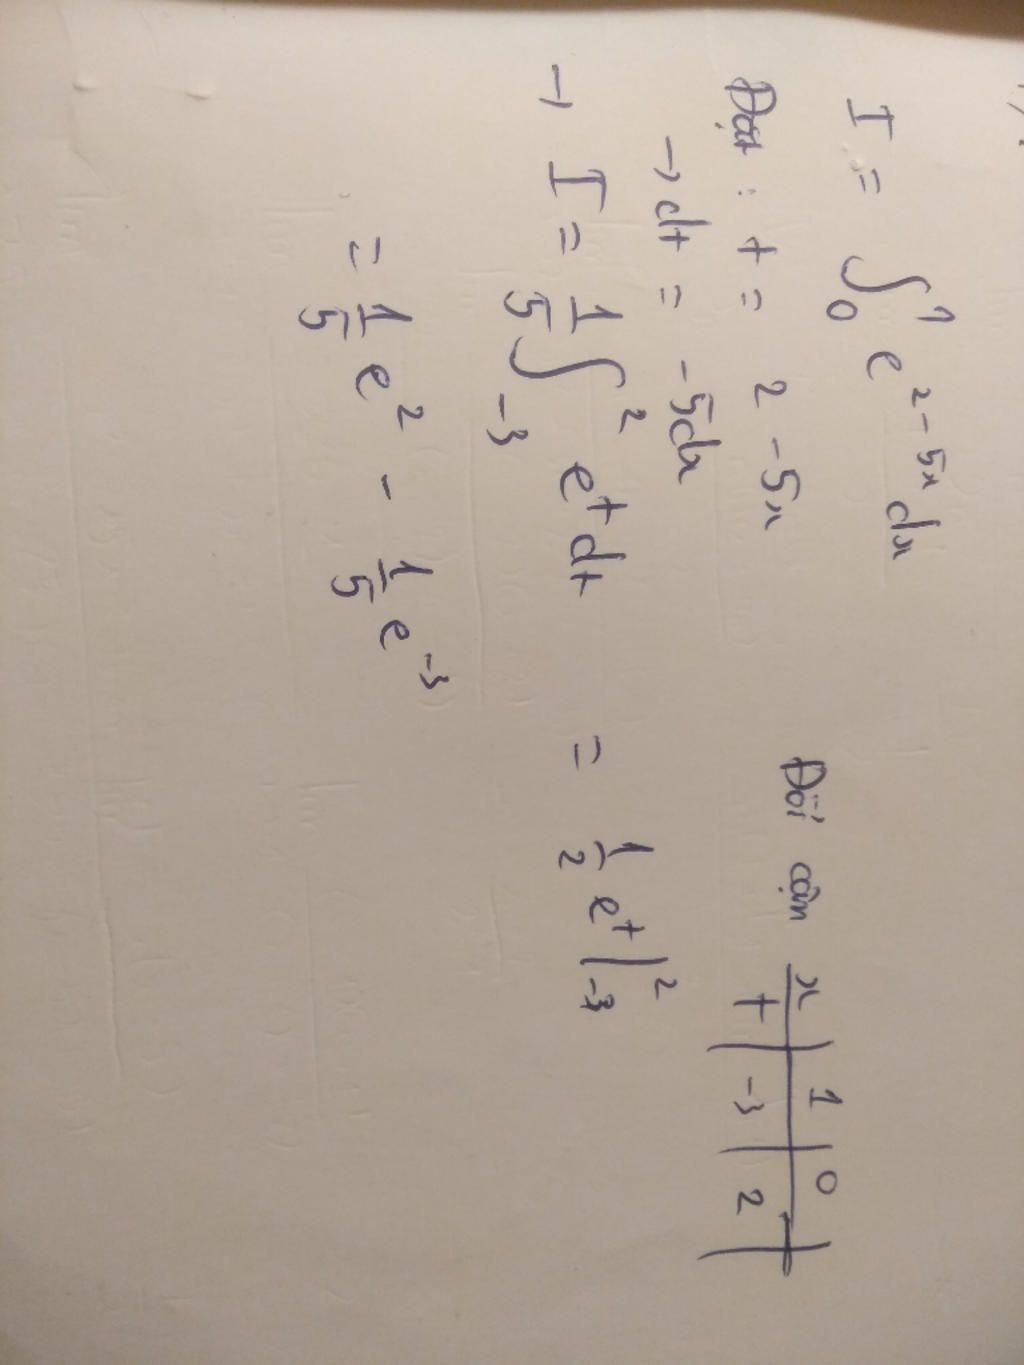 I = ∫₀¹ e^(2-5x) dx
Đặt : t = 2 - 5x
→ dt = -5dx
Đổi cận
x | 1 | 0
t | -3 | 2
→ I = 1/5 ∫₋₃² e^t dt = 1/2 e^t |₋₃²
= 1/5 e² - 1/5 e^(-3)